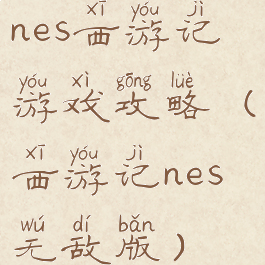 xī yóu jì
nes西游记
yóu xì gōng lüè
游戏攻略（
xī yóu jì
西游记nes
wú dí bǎn
无敌版）